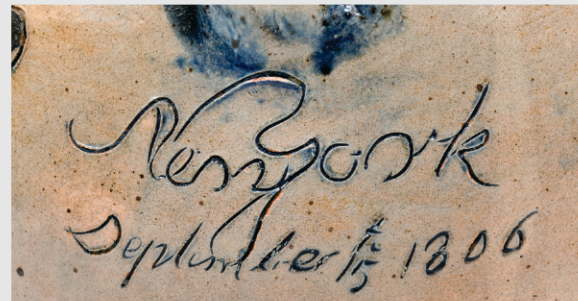 New york
September 15 1806